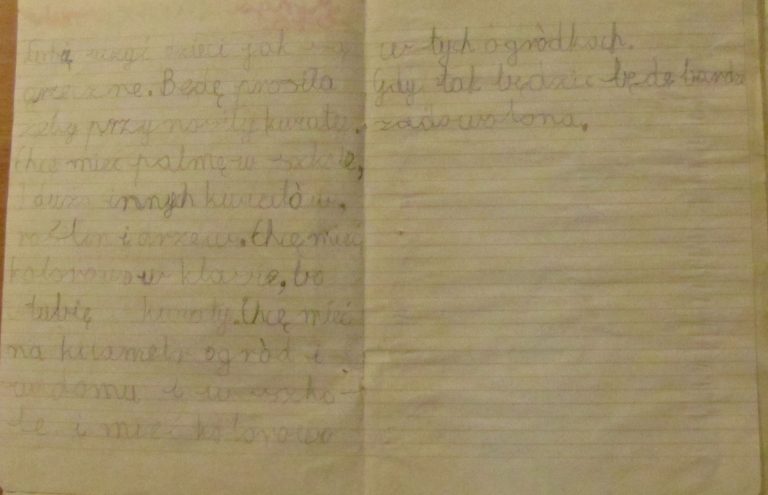 dzieci jak
grzeczne. Będę prosiła
żeby przynosiły kwiaty.
Chcę mieć palmę w szkole,
i dużo innych kwiatów,
roślin i drzew. Chcę mieć
kolorowo w klasie, bo
lubię kwiaty. Chcę mieć
na ogród i
w domu i w szko-
le i mieć kolorowo
w tych ogródkach.
Gdy tak będzie będę bardzo
zadowolona.